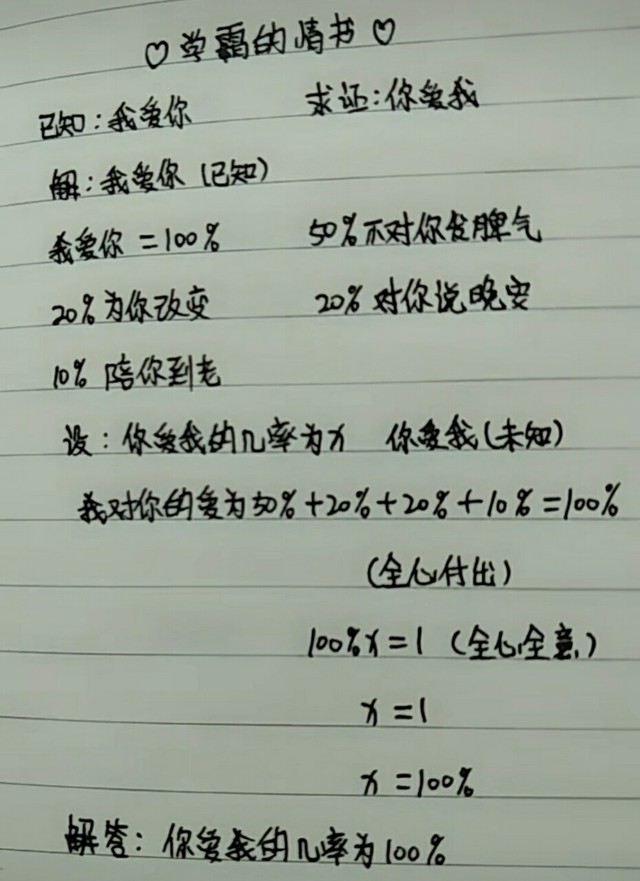 ♡学霸的情书♡
已知:我爱你 求证:你爱我
解:我爱你(已知)
我爱你=100% 50%不对你发脾气
20%为你改变 20%对你说晚安
10%陪你到老
设:你爱我的几率为x 你爱我(未知)
我对你的爱为50%+20%+20%+10%=100%
(全心付出)
100%x=1(全心全意)
x=1
x=100%
解答:你爱我的几率为100%